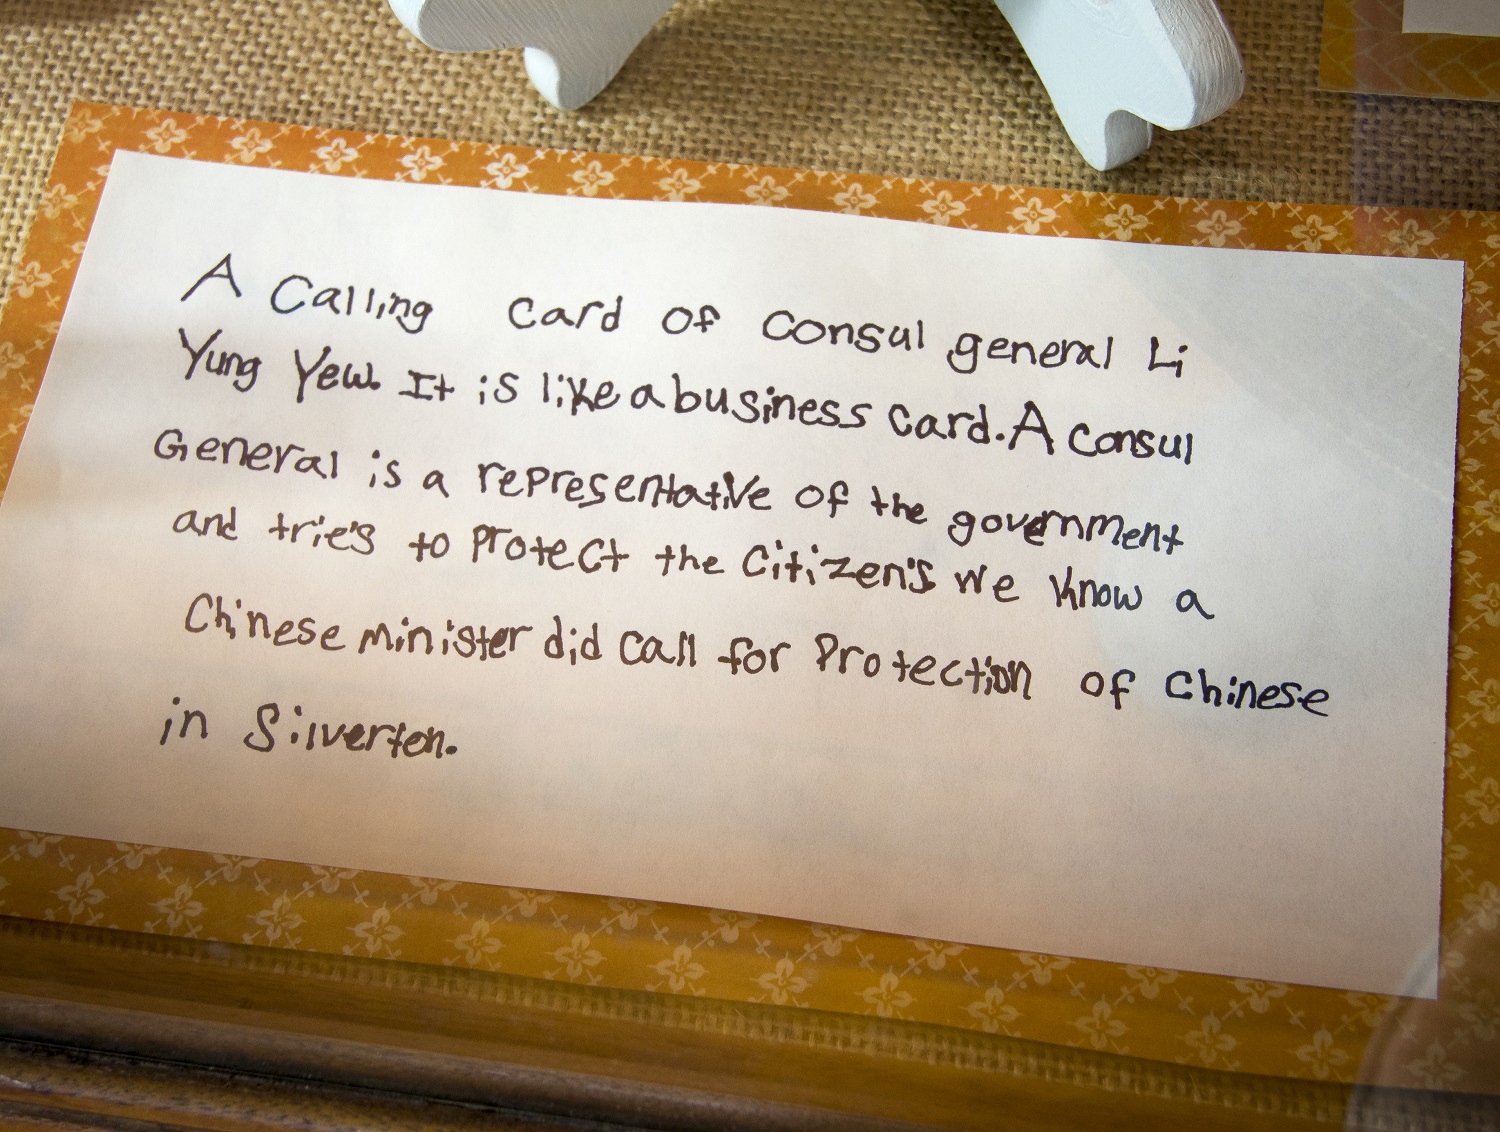 A Calling card of Consul general Li
Yung Yew. It is like a business card. A Consul
General is a representative of the government
and trie's to protect the Citizen's we know a
Chinese minister did call for Protection of Chinese
in Silverton.